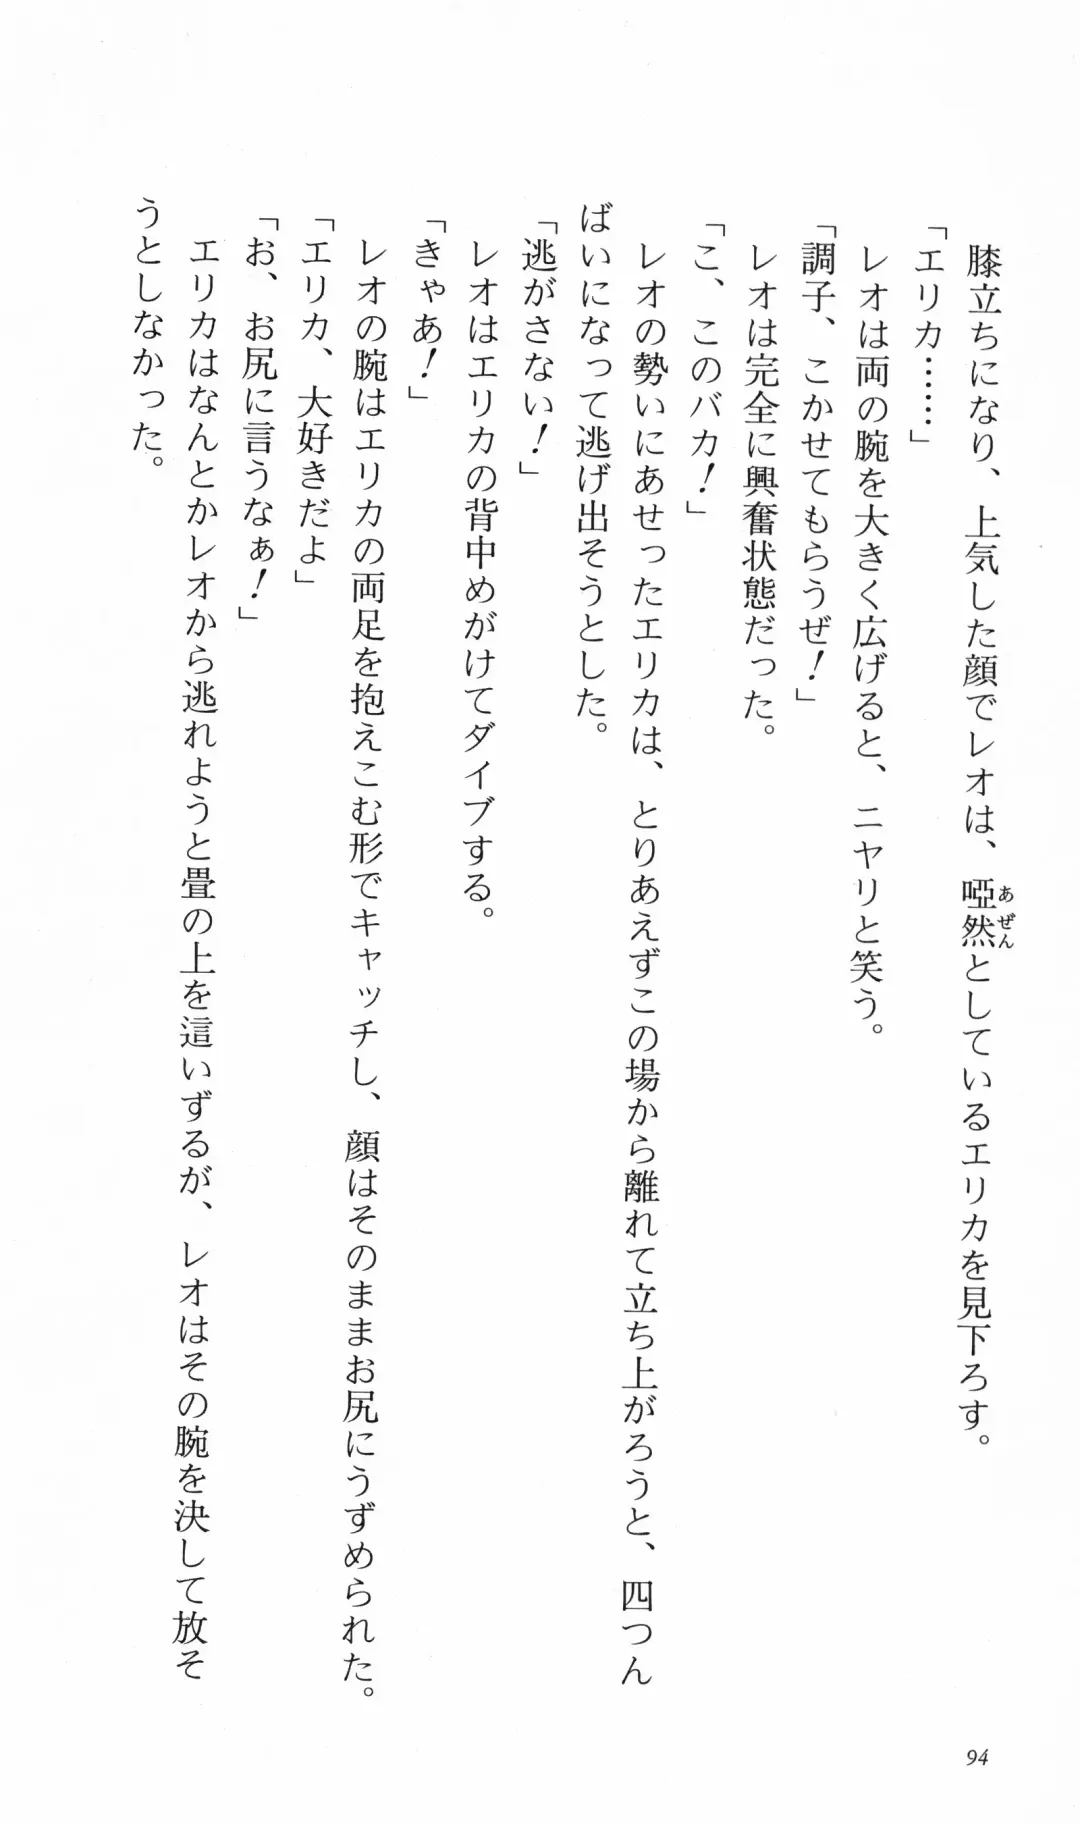 膝立ちになり、上気した顔でレオは、啞然としているエリカを見下ろす。
あぜん
「エリカ……」
レオは両の腕を大きく広げると、ニヤリと笑う。
「調子、こかせてもらうぜ！」
レオは完全に興奮状態だった。
「こ、このバカ！」
レオの勢いにあせったエリカは、とりあえずこの場から離れて立ち上がろうと、四つん
ばいになって逃げ出そうとした。
「逃がさない！」
レオはエリカの背中めがけてダイブする。
「きゃあ！」
レオの腕はエリカの両足を抱えこむ形でキャッチし、顔はそのままお尻にうずめられた。
「エリカ、大好きだよ」
「お、お尻に言うなぁ！」
エリカはなんとかレオから逃れようと畳の上を這いずるが、レオはその腕を決して放そ
うとしなかった。
94